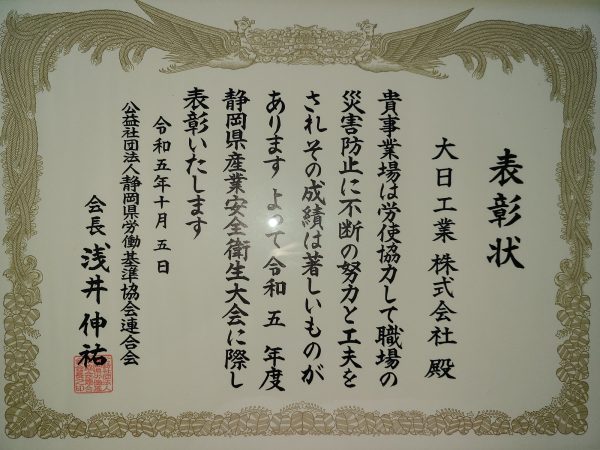 表彰状
大日工業株式会社 殿
貴事業場は労使協力して職場の
災害防止に不断の努力と工夫を
され その成績は著しいものが
あります よって令和 五 年度
静岡県産業安全衛生大会に際し
表彰いたします
令和五年十月五日
公益社団法人静岡県労働基準協会連合会
会長 浅井伸祐